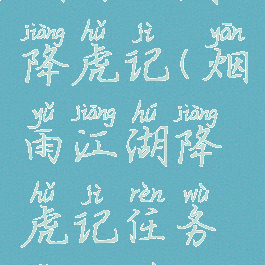 jiàng hǔ jì yān
降虎记(烟
yǔ jiāng hú jiàng
雨江湖降
hǔ jì rèn wù
虎记任务